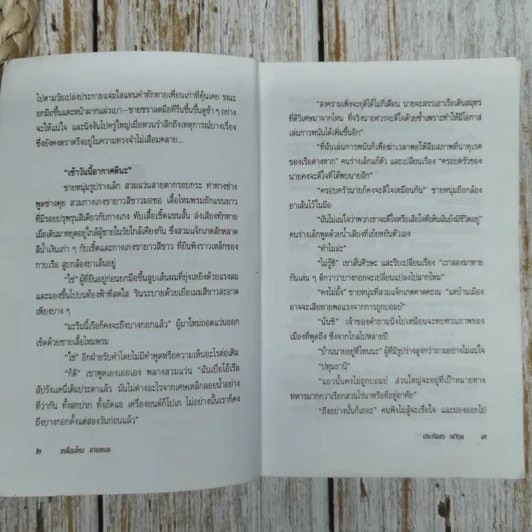 ไปตามวัยเปล่งประกายแจ่มใสแทนคำทักทายเพื่อนเก่าที่คุ้นเคย ขณะ
ยกมือขึ้นแตะหน้าผากแผ่วเบา–ชายชราลดมือที่รีบขึ้นขึ้นดูช้า ๆ อย่าง
จะให้แน่ใจ และนิ่งงันไปครู่ใหญ่เมื่อหวนรำลึกถึงเหตุการณ์บางเรื่อง
ซึ่งยังคงตราตรึงอยู่ในความทรงจำไม่เสื่อมคลาย...
"เช้าวันนี้อากาศดีนะ"
ชายหนุ่มรูปร่างเล็ก สวมแว่นสายตากรอบกระ ท่าทางช่าง
พูดช่างคุย สวมกางเกงขายาวสีขาวมอซอ เสื้อไหมพรมถักแขนยาว
ที่มีรอยปรุพรุนสีเดียวกับกางเกง ทับเสื้อเชิ้ตแขนสั้น ส่งเสียงทักทาย
เมื่อเดินมาหยุดอยู่ใกล้ผู้ชายในวัยใกล้เคียงกัน ซึ่งสวมแจ็กเกตสักหลาด
สีน้ำเงินเก่า ๆ กับเชิ้ตและกางเกงขายาวสีขาว ที่ยืนพิงราวเหล็กของ
กาบเรือ สูบกล้องยาเส้นอยู่
"ใช่" ผู้ที่ยืนอยู่ก่อนยกมือขึ้นลูบเส้นผมที่ยุ่งเหยิงด้วยแรงลม
และมองขึ้นไปบนท้องฟ้าที่สดใส วันระบายด้วยเยื่อเมฆสีขาวสะอาด
เพียงบาง ๆ
"มะรืนนี้เรือก็คงจะถึงบางกอกแล้ว" ผู้มาใหม่ถอดแว่นออก
เช็ดด้วยชายเสื้อไหมพรม
"ใช่" อีกฝ่ายรับคำโดยไม่มีคำพูดหรือความเห็นอะไรต่อเติม
"ก็ดี" เขาพูดเองเออเอง พลางสวมแว่น "ฉันเบื่อไอ้เรือ
สัปรังเคนี่เต็มประดาแล้ว มันไม่ต่างอะไรจากเศษเหล็กลอยน้ำอย่าง
ที่ว่ากัน ทั้งสกปรก ทั้งอัดแอ เครื่องยนต์ก็โปเก ไม่อย่างนั้นเราก็คง
ถึงบางกอกตั้งแต่สองวันก่อนแล้ว"
๒
"สงครามเพิ่งจะยุติได้ไม่กี่เดือน นายจะสรรเอาเรือเดินสมุทร
ที่ดีวิเศษมาจากไหน ที่จริงนายควรจะดีใจด้วยซ้ำเพราะทำให้มีโอกาส
เล่นการพนันได้เพิ่มขึ้นอีก"
"ที่ฉันเล่นการพนันก็เพื่อฆ่าเวลาพอให้ลืมสภาพที่น่าทุเรศ
ของเรือต่างหาก" คนร่างเล็กแก้ตัว และเปลี่ยนเรื่อง "ครอบครัวของ
นายคงจะดีใจที่ได้พบนายอีก"
"ครอบครัวนายก็คงจะดีใจเหมือนกัน" ชายหนุ่มถือกล้อง
ยาเส้นไว้ในมือ
"ฉันไม่แน่ใจว่าพวกเขาจะดีใจหรือเสียใจที่เห็นฉันยังมีชีวิตอยู่"
คนร่างเล็กพูดด้วยน้ำเสียงที่เย้ยหยันตัวเอง
"ทำไมล่ะ"
"ไม่รู้ซิ" เขาสั่นศีรษะ และรีบเปลี่ยนเรื่อง "เราลองมาทาย
กันเล่น ๆ ดีกว่าว่าบางกอกจะเปลี่ยนแปลงไปมากไหม"
"คงไม่มั้ง" ชายหนุ่มที่สวมแจ็กเกตคาดคะเน "แต่บ้านเมือง
อาจจะเสียหายพอแรงจากการถูกบอมบ์"
"นั่นซี" เจ้าของคำถามนิ่งไปเหมือนจะทบทวนภาพของ
เมืองที่พูดถึง ซึ่งจากไกลไปหลายปี
"บ้านนายอยู่ที่ไหนนะ" ผู้ที่มีรูปร่างสูงกว่าถามอย่างไม่แน่ใจ
"ปทุมธานี"
"แถวนั้นคงไม่ถูกบอมบ์ ส่วนใหญ่จะอยู่ที่เป้าหมายทาง
ทหารมากกว่าเรือกสวนไร่นาหรือที่อยู่อาศัย"
"ถึงอย่างนั้นก็เถอะ" คนฟังไม่สู้จะเชื่อใจ และมองออกไป
ประภัสสร เสวิกุล ๓